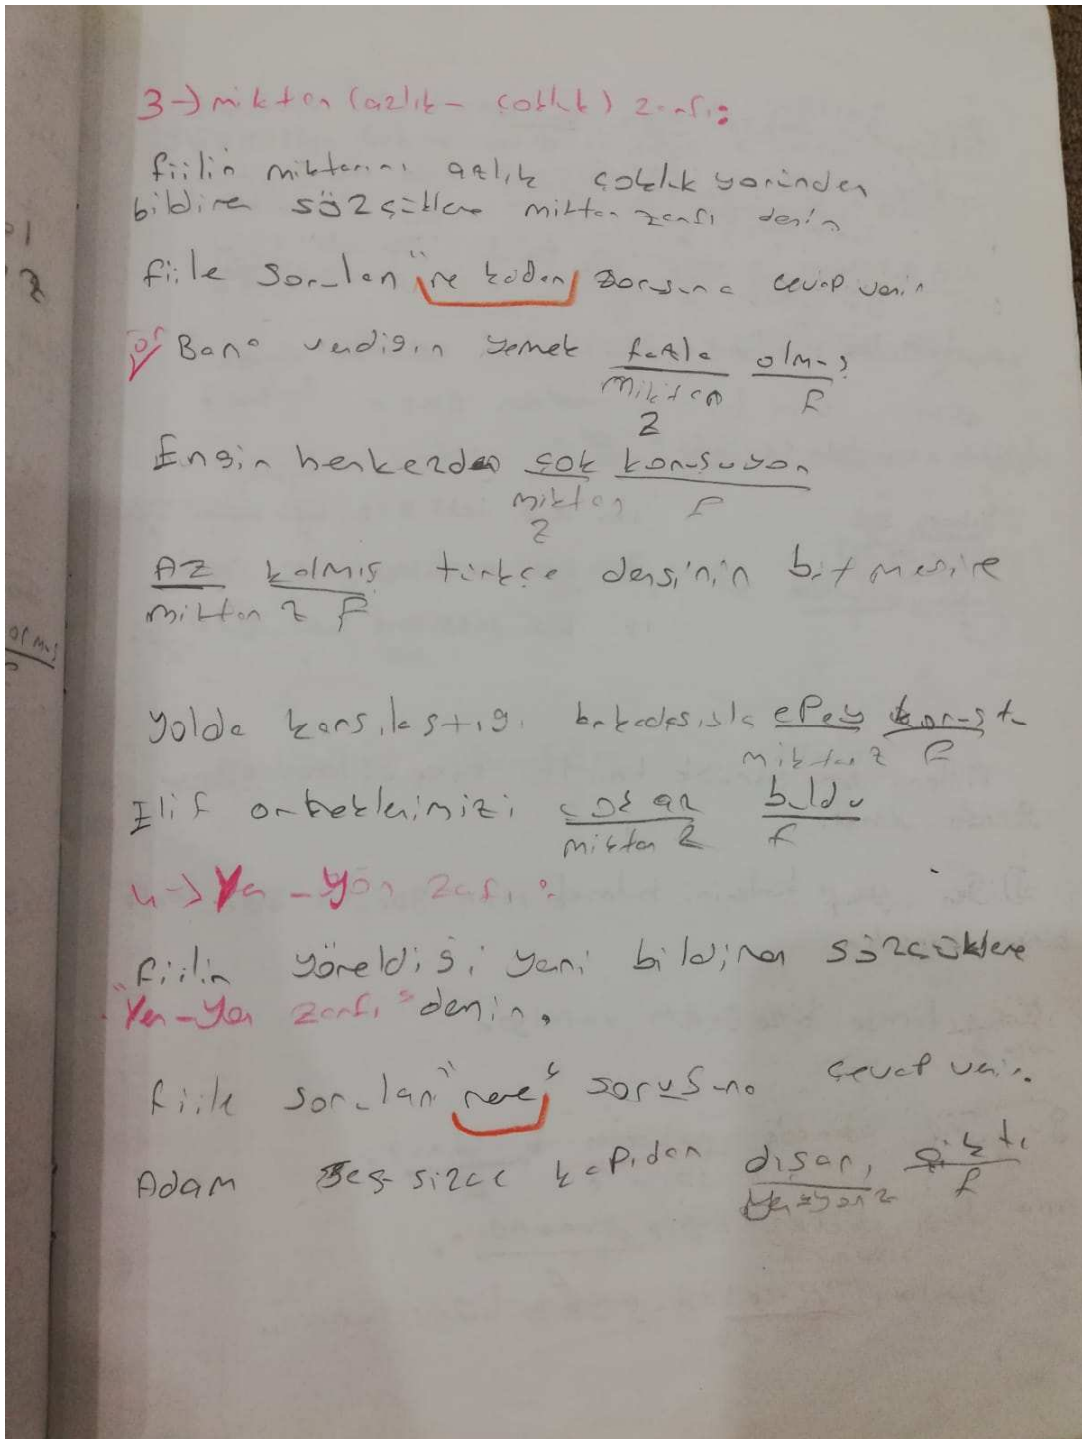 3→ miktar (azlık - çokluk) zarfı:
fiilin miktarını azlık çokluk yönünden
bildiren sözcüklere miktar zarfı denir
fiile sorulan "ne kadar" sorusuna cevap verir
ör Bana verdiğin yemek fazla olmuş
miktar F
Z
Engin herkezden çok konuşuyor
miktar F
Z
Az kalmış türkçe dersinin bitmesine
miktar Z F
yolda karşılaştığı arkadaşıyla epey konuştu
miktar Z F
Elif örneklerimizi çok az buldu
miktar Z F
4→ Yer-yön zarfı:
fiilin yöneldiği yeri bildiren sözcüklere
"Yer-yön zarfı" denir.
fiile sorulan "nere" sorusuna cevap verir.
Adam sessizce kapıdan dışarı çıktı
yer yön z F
olmuş